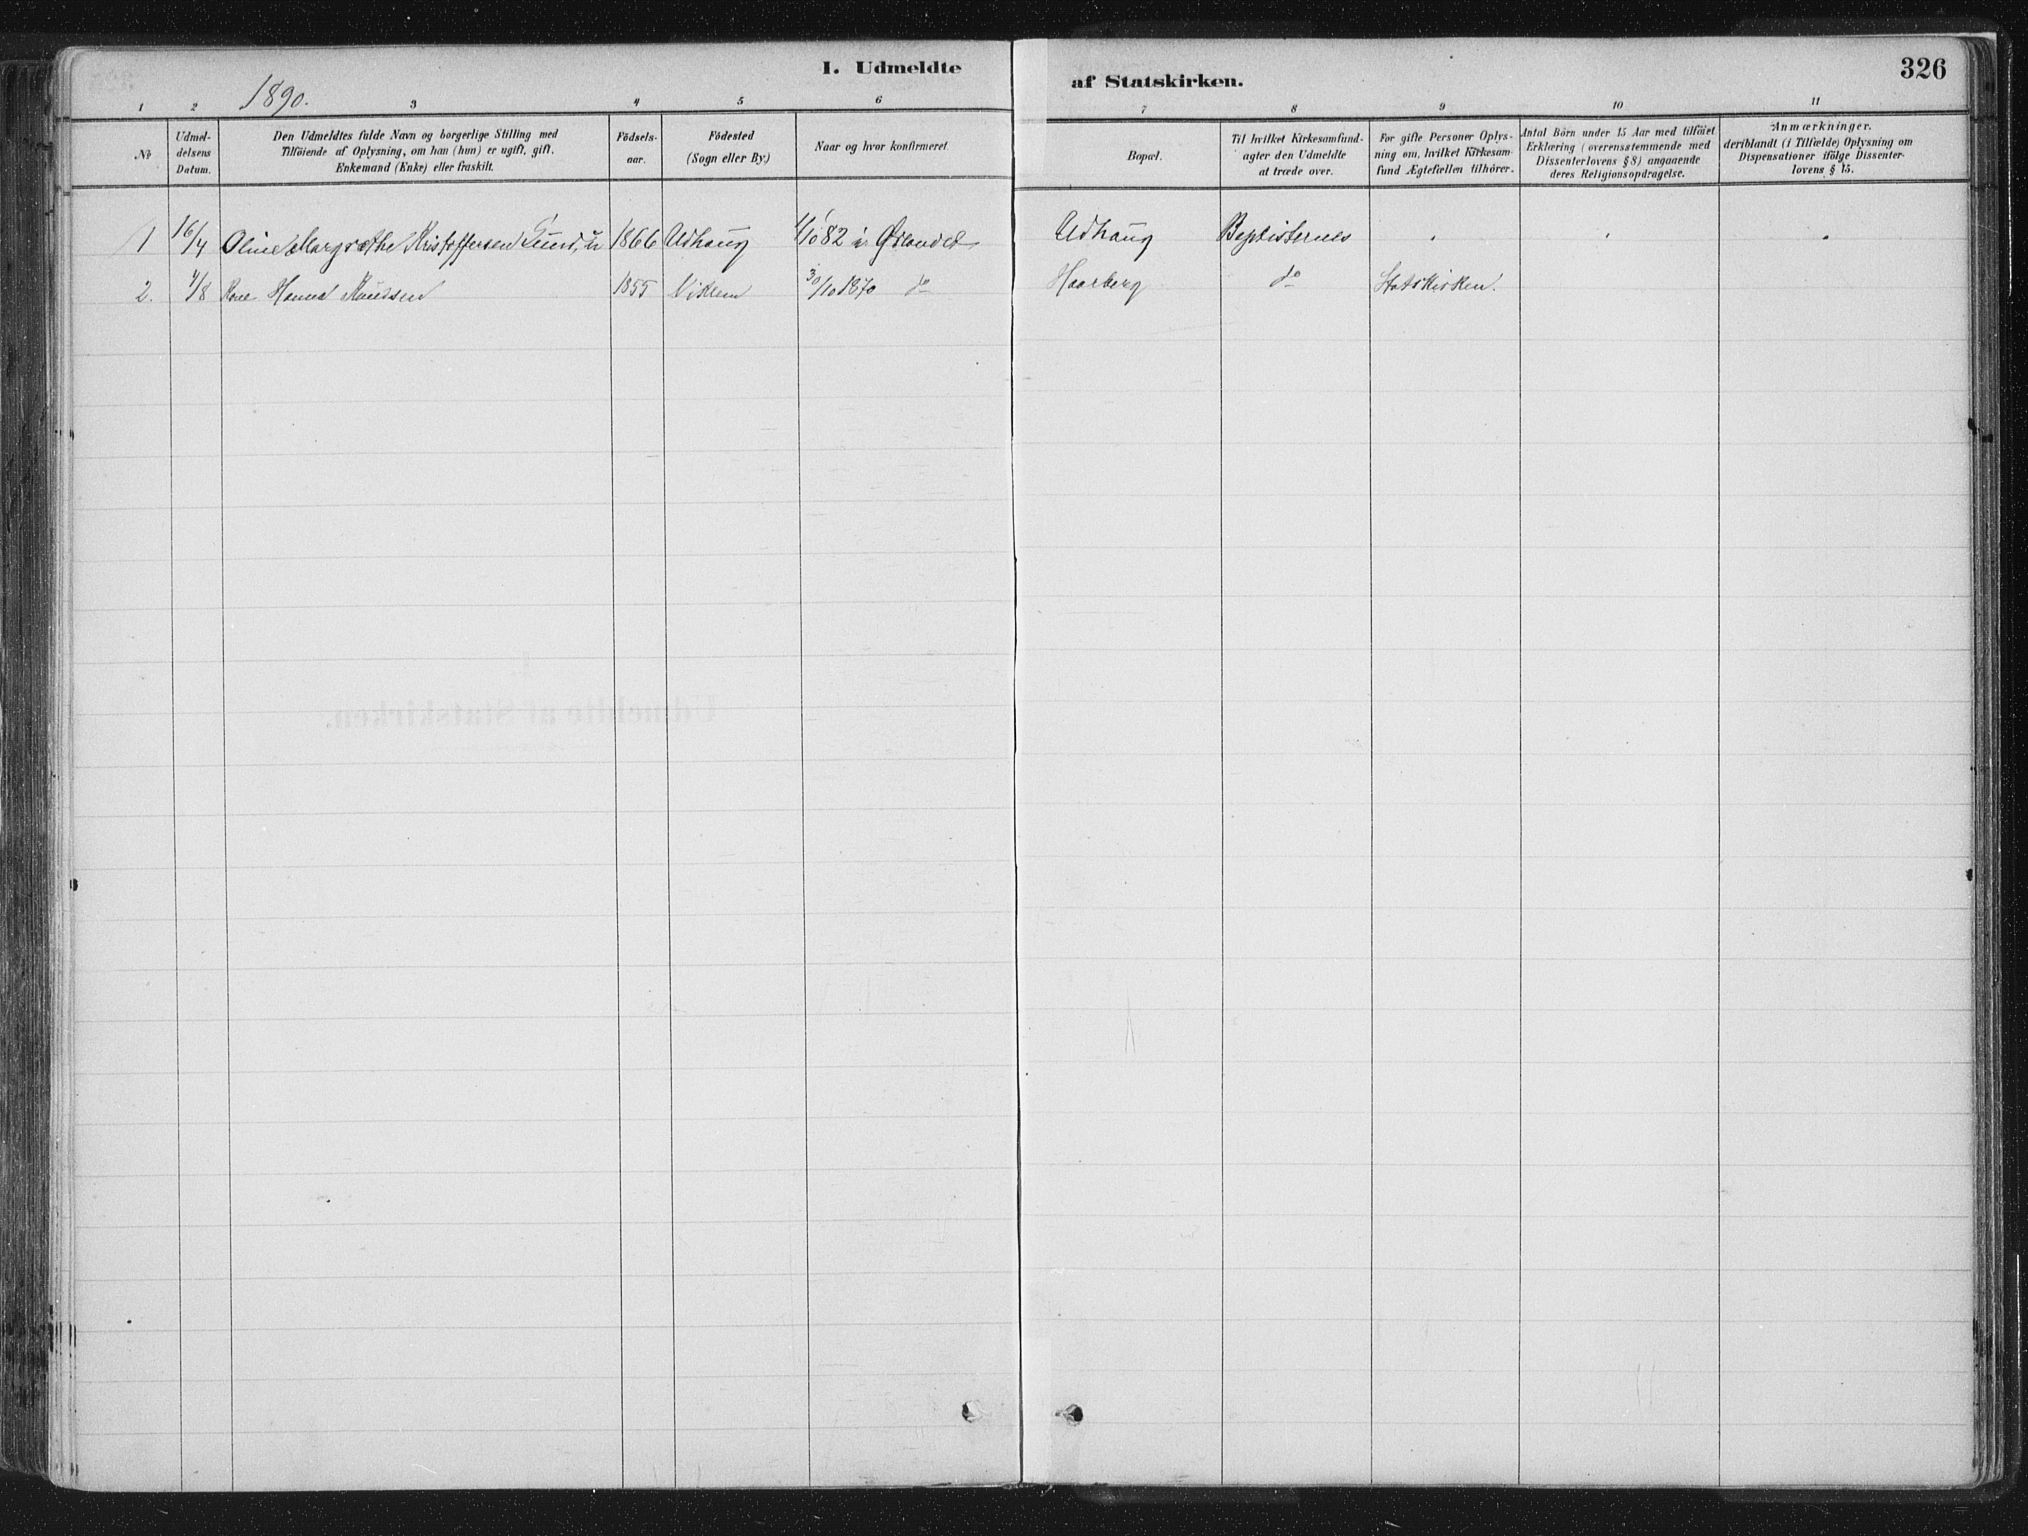 I. Udmeldte af Statskirken.
326
1890.
1 2 3 4 5 6 7 8 9 10 11
No
Udmel-
delsens
Datum.
Den Udmeldtes fulde Navn og borgerlige Stilling med
Tilføiende af Oplysning, om han (hun) er ugift, gift,
Enkemand (Enke) eller fraskilt.
Födsels-
aar.
Födested
(Sogn eller By.)
Naar og hvor konfirmeret.
Bopæl.
Til hvilket Kirkesamfund-
agter den Udmeldte
at træde over.
For gifte Personer Oplys-
ning om, hvilket Kirkesam-
fund Ægtefællen tilhörer.
Antal Börn under 15 Aar med tilföiet
Erklæring (overensstemmende med
Dissenterlovens § 8) angaaende
deres Religionsopdragelse.
Anmærkninger.
deriblandt (i Tilfælde) Oplysning om
Dispensationer ifölge Dissenter-
lovens § 15.
1 16/4 Oline Margrethe Kristoffersen Lund, u 1866 Udhaug 1/10 82 i Ørlandet Udhaug Baptisternes
2. 4/8 Kone Hanna Knudsen 1855 Viklem 30/10 1870 do Haarberg do Statskirken.